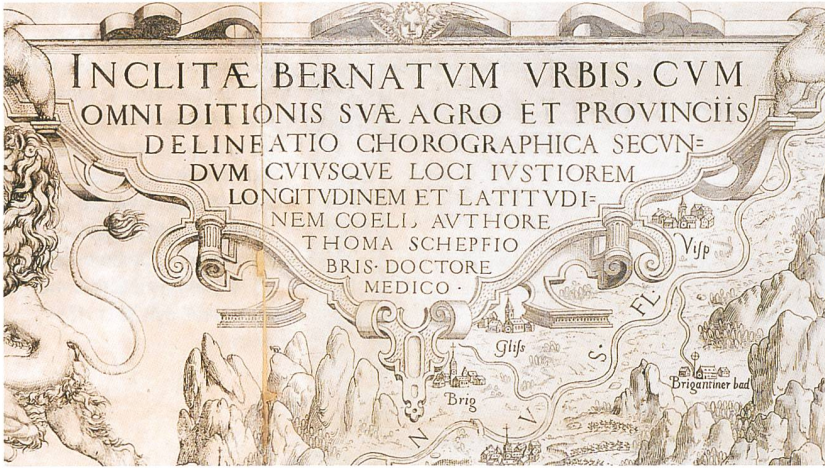 INCLITÆ BERNATVM VRBIS, CVM
OMNI DITIONIS SVÆ AGRO ET PROVINCIIS
DELINEATIO CHOROGRAPHICA SECVN=
DVM CVIVSQVE LOCI IVSTIOREM
LONGITVDINEM ET LATITVDI=
NEM COELI, AVTHORE
THOMA SCHEPFIO
BRIS· DOCTORE
MEDICO ·
Visp
Gliss
Brigantiner bad
Brig
N V S. FL